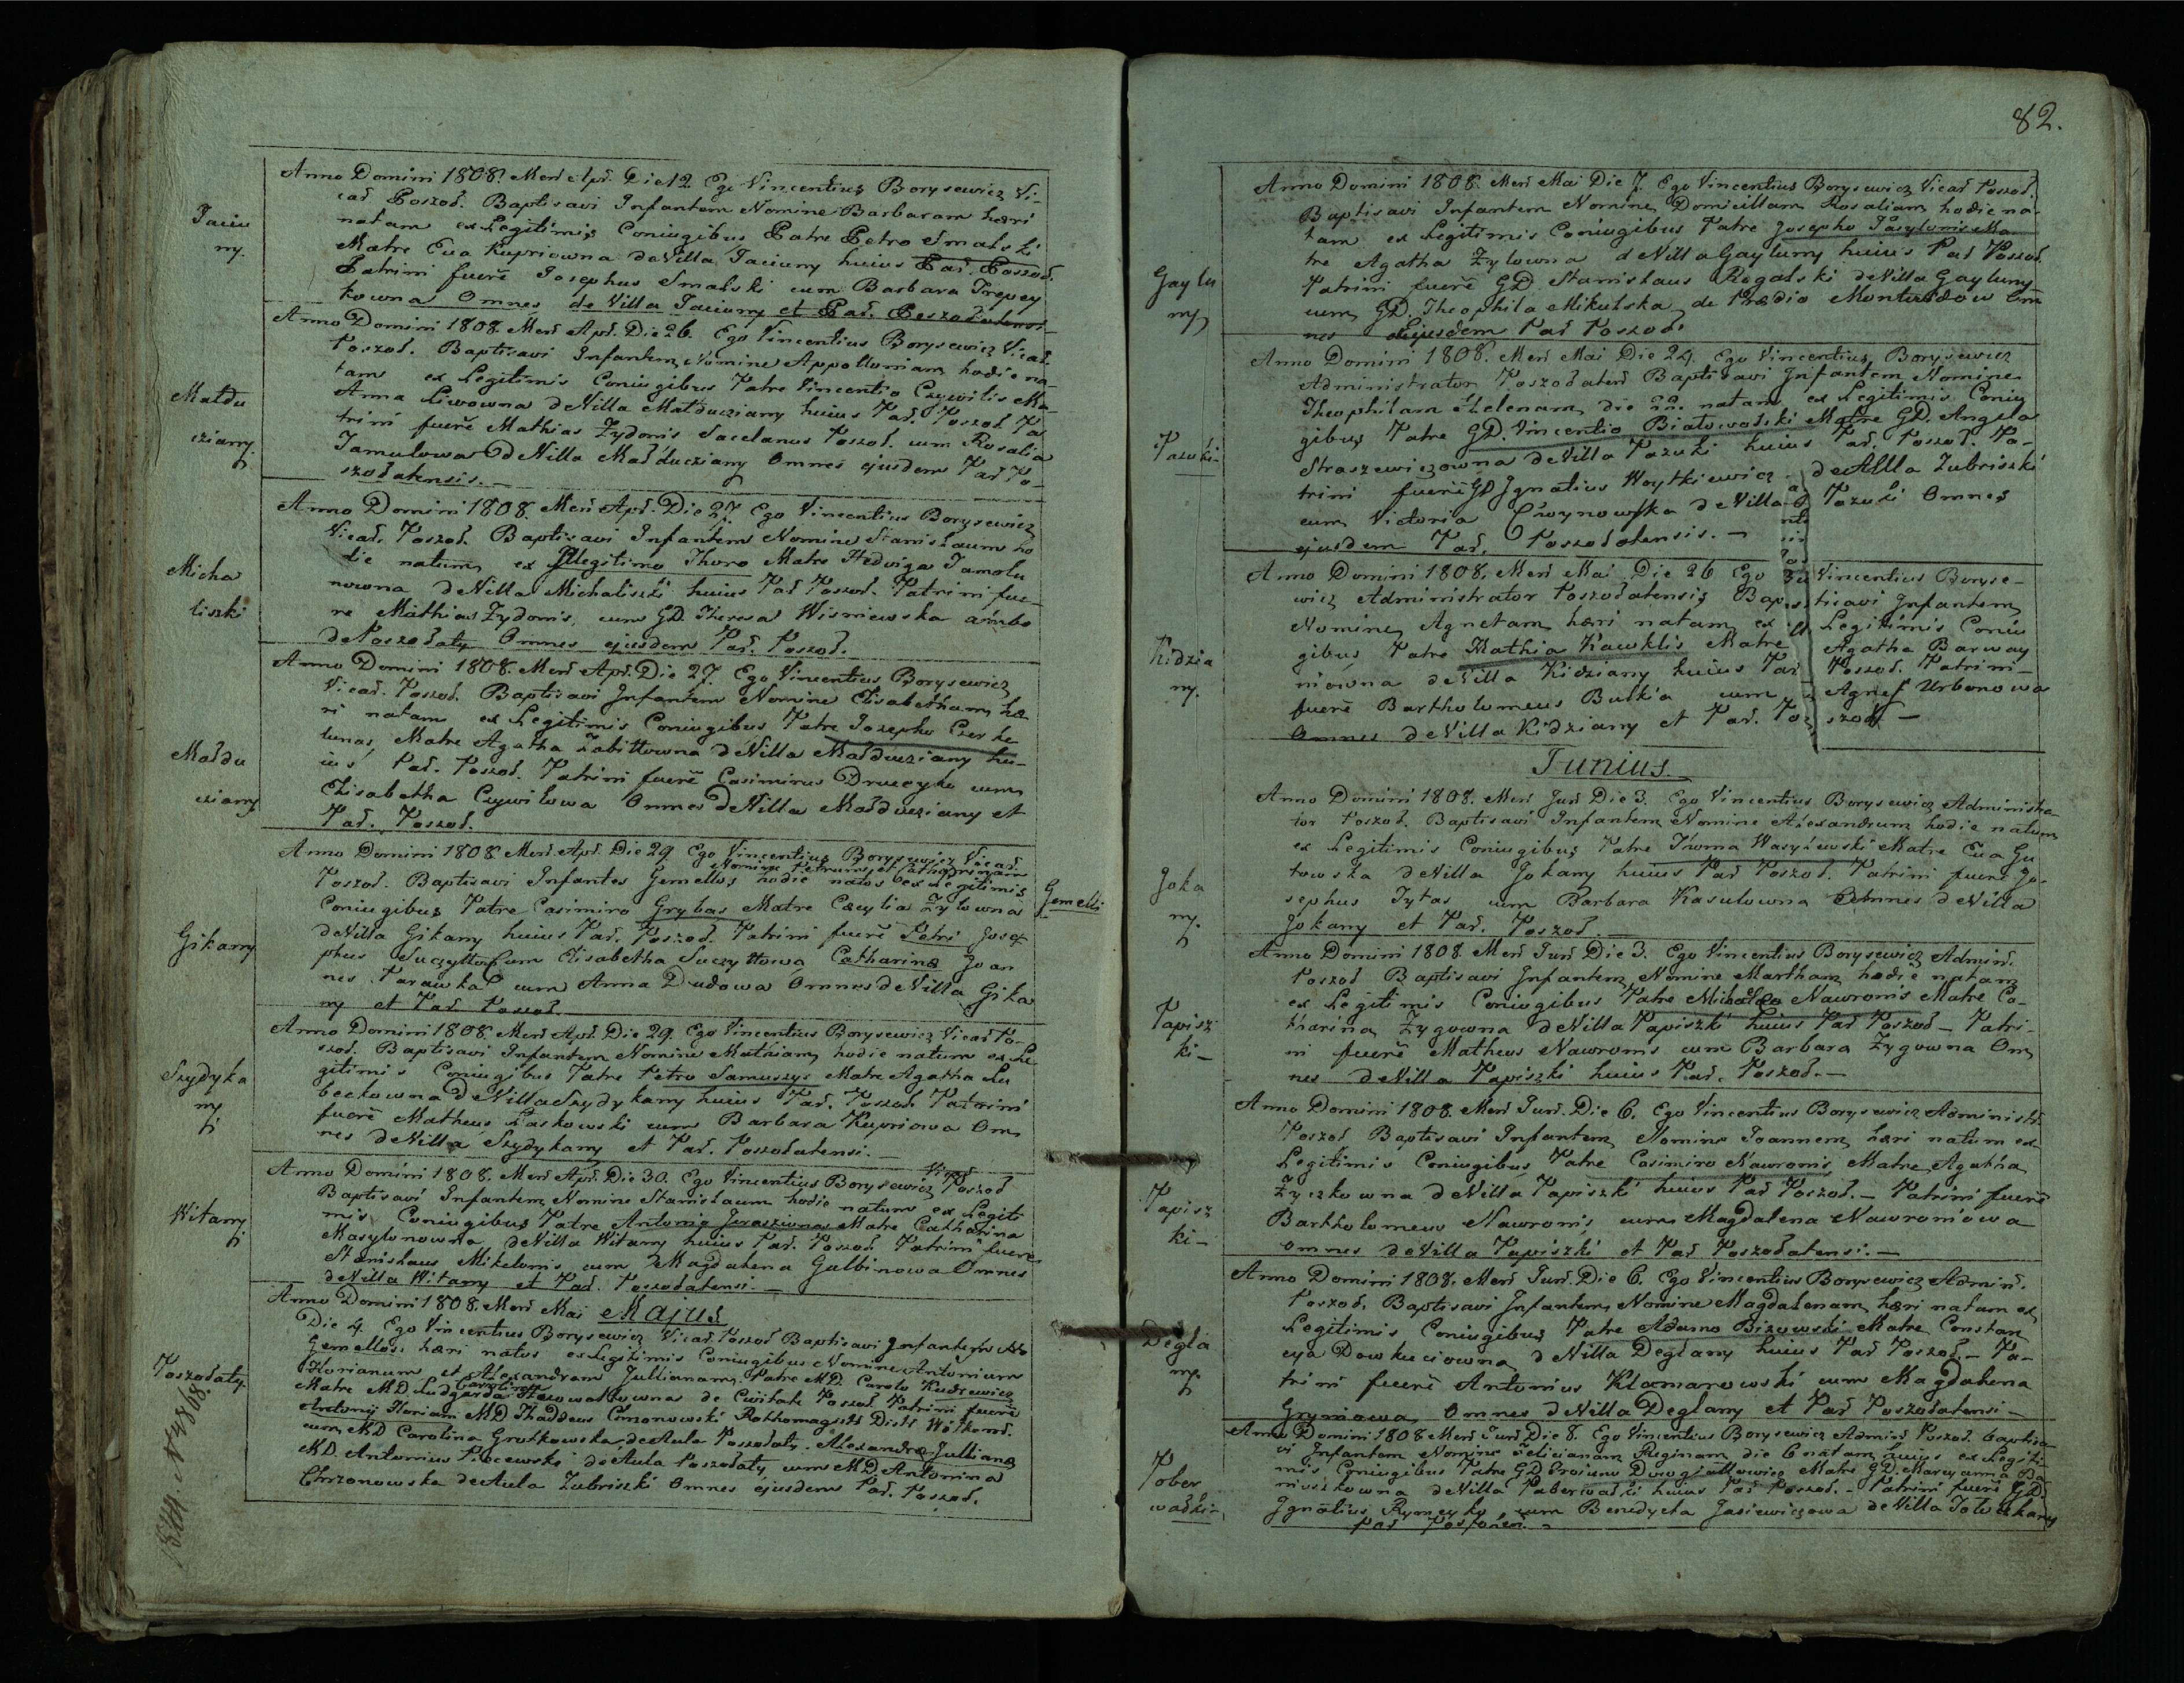 Taciu
ny.
Anno Domini 1808. Men Apr. Die 12. Ego Vincentius Borysewicz Vi-
car Poszoł. Baptisavi Infantem Nomine Barbaram hæri
natam ex Legitimis Coniugibus Patre Petro Smalski
Matre Eva Kupriowna de Villa Taciuny huius Par. Poszoł.
Patrini fuere Josephus Smalski cum Barbara Trepey
kowna Omnes de Villa Taciuny et Par. Poszołatensi
Małdu
cziany.
Anno Domini 1808. Men Apr. Die 26. Ego Vincentius Borysewicz Vicar.
Poszoł. Baptisavi Infantem Nomine Appolloniam hodie na-
tam ex Legitimis Coniugibus Patre Vincentio Czywilis Ma-
Anna Liwowna de Villa Małducziany huius Par. Poszoł. Pa
trini fuere Mathias Zydonis Sacelanus Poszoł. cum Rosalia
Jamulowa de Villa Małducziany Omnes ejusdem Par Po-
szołatensis.-
Micha
liszki
Anno Domini 1808. Men Apr. Die 27. Ego Vincentius Borysewicz
Vicar. Poszoł. Baptisavi Infantem Nomine Stanislaum ho
die natum ex Illegitimo Thoro Matre Hedviga Jamolu
nowna de Villa Michaliszki huius Par Poszoł. Patrini fue-
re Mathias Zydonis, cum GD. Theresa Wisniewska ambo
de Poszołaty Omnes ejusdem Par. Poszoł.
Małdu
cziany
Anno Domini 1808. Men Apr. Die 27. Ego Vincentius Borysewicz
Vicar. Poszoł. Baptisavi Infantem Nomine Elisabetham hæ
ri natam ex Legitimis Coniugibus Patre Josepho Czerke
lunas, Matre Agatha Zabittowna de Villa Małducziany hu-
ius Par. Poszoł. Patrini fuere Casimirus Druczyko cum
Elisabetha Czywilowa Omnes de Villa Małducziany et
Par. Poszoł.
Gikany
Anno Domini 1808. Men Apr. Die 29. Ego Vincentius Borysewicz Vicar.
Nomine Petrum et Catharinam
Poszoł. Baptisavi Infantes Gemellos hodie natos ex Legitimis
Gemelli
Coniugibus Patre Casimiro Grybas Matre Cæcylia Zylowna
de Villa Gikany huius Par. Poszoł. Patrini fuere Petri Jose
phus Suczyłło cum Elisabetha Suczyłłowa Catharina Joan
nes Parawka cum Anna Dudowa Omnes de Villa Gika
ny et Par Poszoł.
Szydyka
ny
Anno Domini 1808. Men Apr. Die 29. Ego Vincentius Borysewicz Vicar Po-
szoł. Baptisavi Infantem Nomine Mathiam hodie natum ex Le
gitimis Coniugibus Patre Petro Samuszys Matre Agatha Lu
beckowna de Villa Szydykany huius Par. Poszoł. Patrini
fuere Matheus Laskowski cum Barbara Kupriowa Om
nes de Villa Szydykany et Par. Poszołatensi.-
Witany
Anno Domini 1808. Men Apr. Die 30. Ego Vincentius Borysewicz Vicar Poszoł
Baptisavi Infantem Nomine Stanislaum hodie natum ex Legiti
mis Coniugibus Patre Antonio Juraszionas Matre Catharina
Masylonowna de Villa Witany huius Par. Poszoł. Patrini fuere
Stanislaus Mikelonis cum Magdalena Galbinowa Omnes
de Villa Witany et Par. Poszołatensi.-
Poszołaty.
Anno Domini 1808. Men Mai Majus
Die 4. Ego Vincentius Borysewicz Vicar. Poszoł Baptisavi Infantem
Gemellos. hæri natos ex Legitimis Coniugibus Nomine Antonium
Florianum et Alexandram Jullianam. Patre MD Carolo Kudrewicz
Carolina
Matre MD Ludgarda Nowowałłowna de Civitate Poszoł Patrini fuere
Antonij Floriani MD Thaddeus Cimonowski Rothomagist Distr Wiłkom.
cum MD Carolina Grotkowska de Aula Poszołaty. Alexandra Julliana
MD. Antonius Pilocewski de Aula Poszołaty cum MD Antonina
Chrzonowska de Aula Zubriszki Omnes ejusdem Par. Poszoł.
82.
Gaylu
ny
Anno Domini 1808. Men Mai Die 7. Ego Vincentius Borysewicz Vicar Poszoł.
Baptisavi Infantem Nomine Domicillam Rosaliam hodie na-
tam ex Legitimis Coniugibus Patre Josepho Pasylonis Ma
tre Agatha Zylowna de Villa Gayluny huius Par Poszoł.
Patrini fuere GD. Stanislaus Rogalski de Villa Gayluny
cum GD. Theophila Mikulska de Prædio Montwidow Om
nes Ejusdem Par Poszoł.
Pazuki-
Anno Domini 1808. Men Mai Die 24. Ego Vincentius Borysewicz
Administrator Poszołaten Baptisavi Infantem Nomine
Theophilam Helenam die 22. natam ex Legitimis Coniu
gibus Patre GD. Vincentio Białowolski Matre GD. Angela
Straszewiczowna de Villa Pazuki huius Par. Poszoł. Pa-
trini fuere GD Ignatius Woytkiewicz de Villa Zubriszki
cum Victoria Chrzynowska de Villa Pazuki Omnes
ejusdem Par. Poszołatensis.-
Kidzia
ny.
Anno Domini 1808. Men Mai Die 26 Ego Vincentius Boryse-
wicz Administrator Poszołatensis Baptisavi Infantem
Nomine Agnetam hæri natam ex Legitimis Coniu
gibus Patre Mathia Kawklis Matre Agatha Barway
niowna de Villa Kidziany huius Par Poszoł. Patrini-
fuere Bartholomeus Bulka cum Agnes Urbonowa
Omnes de Villa Kidziany et Par. Poszoł-
Junius.
Joka
ny.
Anno Domini 1808. Men Jun Die 3. Ego Vincentius Borysewicz Administra
tor Poszoł. Baptisavi Infantem Nomine Alexandrum hodie natum
ex Legitimis Coniugibus Patre Thoma Wasylewski Matre Eva Gu
towska de Villa Jokany huius Par Poszoł. Patrini fuere Jo-
sephus Tytas cum Barbara Kasulowna Omnes de Villa
Jokany et Par. Poszoł.-
Papisz
ki-
Anno Domini 1808. Men Jun Die 3. Ego Vincentius Borysewicz Admin.
Poszoł Baptisavi Infantem Nomine Martham hodie natam
ex Legitimis Coniugibus Patre Michaele Nawronis Matre Ca-
tharina Zygowna de Villa Papiszki huius Par Poszoł- Patri-
ni fuere Matheus Nawronis cum Barbara Zygowna Om
nes de Villa Papiszki huius Par. Poszoł.-
Papisz
ki-
Anno Domini 1808. Men Jun. Die 6. Ego Vincentius Borysewicz Administr.
Poszoł Baptisavi Infantem Nomine Joannem hæri natum ex
Legitimis Coniugibus Patre Casimiro Nawronis Matre Agatha
Zyczkowna de Villa Papiszki huius Par Poszoł.- Patrini fuere
Bartholomeus Nawronis cum Magdalena Nawroniowa
omnes de Villa Papiszki et Par Poszołatensi.-
Degla
ny.
Anno Domini 1808. Men Jun. Die 6. Ego Vincentius Borysewicz Admin.
Poszoł. Baptisavi Infantem Nomine Magdalenam hæri natam ex
Legitimis Coniugibus Patre Adamo Bizowski Matre Constan
cya Dowkuciowna de Villa Deglany huius Par Poszoł- Pa-
trini fuere Antonius Klamarowski cum Magdalena
Gryniowa Omnes de Villa Deglany et Par Poszołatensi-
Pober
wałki-
Anno Domini 1808 Men Jun Die 8. Ego Vincentius Borysewicz Admin Poszoł. Baptisa
vi Infantem Nomine Felicianam Reginam die 6 natam huius ex Legiti-
mis Coniugibus Patre GD Erasmo Dowgiałłowicz Matre GD. Maryanna Ja
niuszkowna de Villa Paberwałki huius Par Poszoł.- Patrini fuere GD.
Ignatius Rymcyko cum Benedycta Jasiewiczowa de Villa Totoczkany